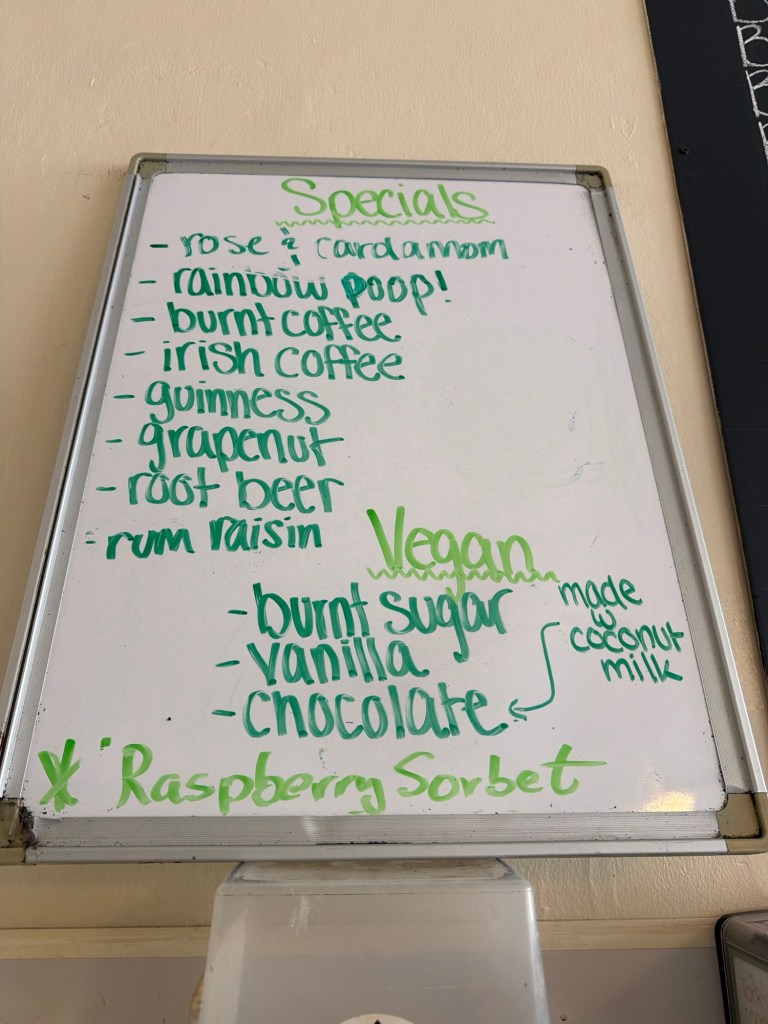 Specials
- rose & cardamom
- rainbow poop!
- burnt coffee
- irish coffee
- guinness
- grapenut
- root beer
- rum raisin
Vegan
- burnt sugar
- vanilla
- chocolate
made
w
coconut
milk
* Raspberry Sorbet